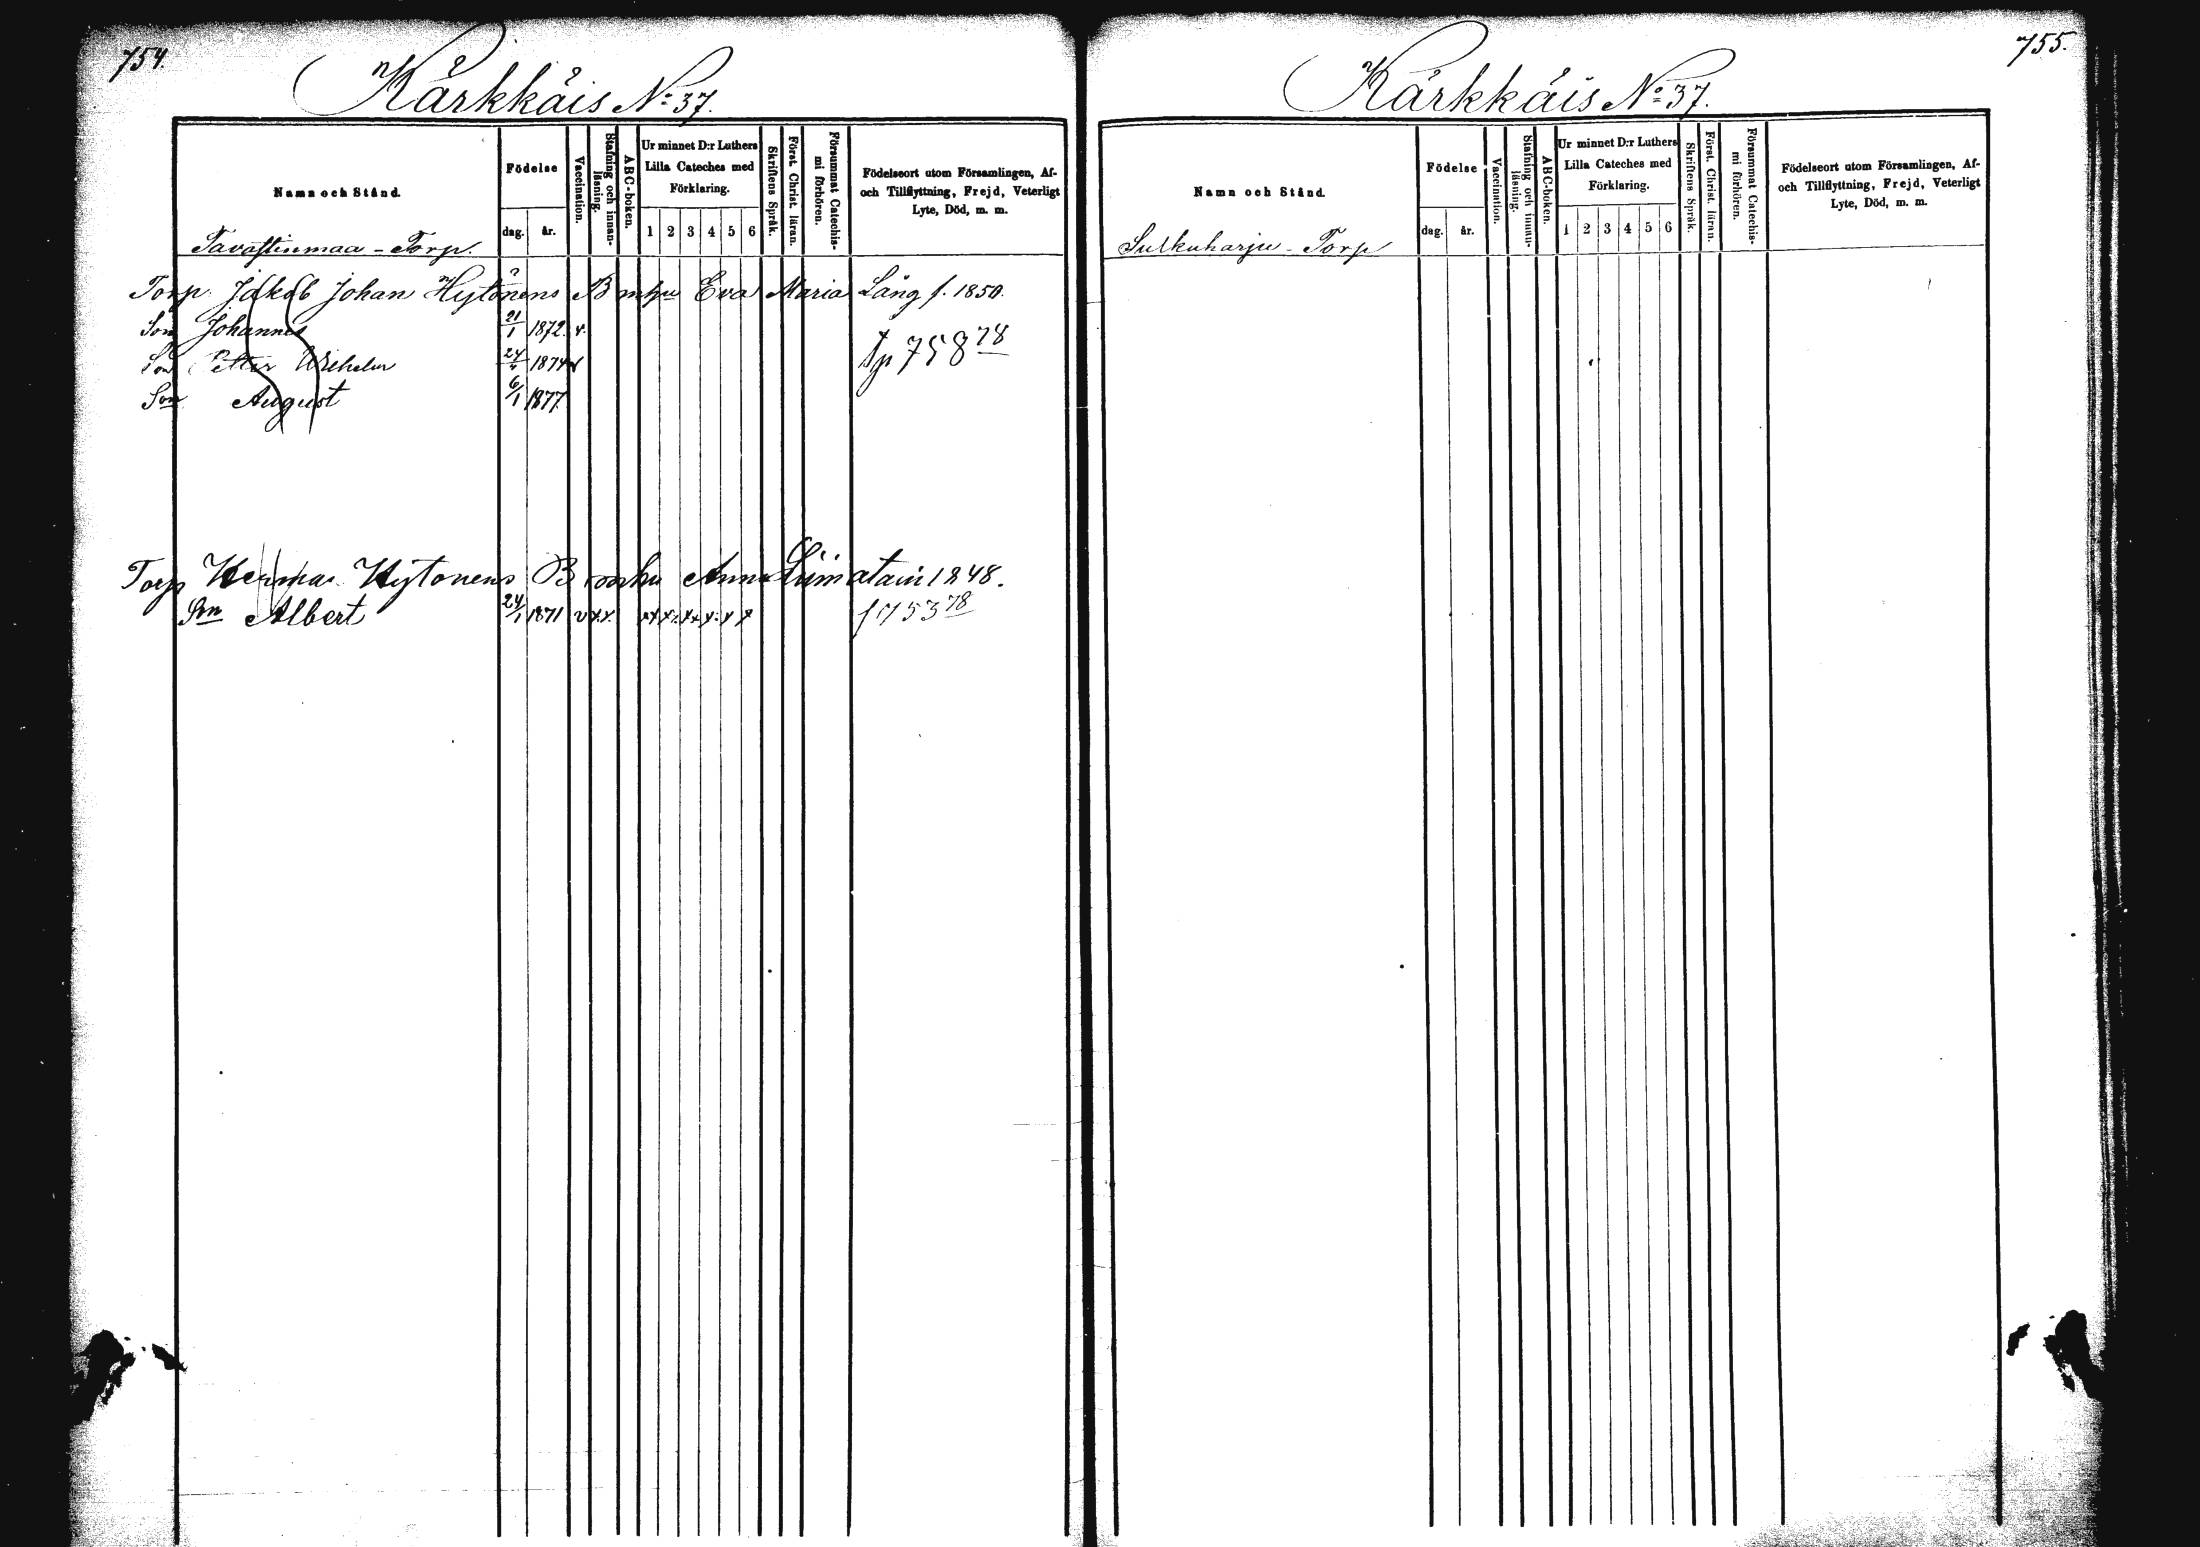 754.
Kärkkäis No 37.
Namn och Stånd.
Födelse
dag. år.
Vaccination.
Stafning och innan-läsning.
ABC-boken.
Ur minnet D:r Luthers Lilla Cateches med Förklaring.
1 2 3 4 5 6
Skriftens Språk.
Först. Christ. läran.
Försummat Catechis-mi förhören.
Födelseort utom Församlingen, Af-
och Tillflyttning, Frejd, Veterligt
Lyte, Död, m. m.
Tavastinmaa - Torp.
Torp. Jakob Johan Hytönens B mhu Eva Maria Lång f. 1850.
Son Johannes 21/1 1872. v.
Son Petter Wilhelm 24/4 1874 v
p 758 78
Son August 6/1 1877
Torp Herman Hytönens B mhu Anna Liimatain 1848.
Son Albert 24/1 1871 v x.x. x x x x x x
p 753 78
755.
Kärkkäis No 37.
Namn och Stånd.
Födelse
dag. år.
Vaccination.
Stafning och innan-läsning.
ABC-boken.
Ur minnet D:r Luthers Lilla Cateches med Förklaring.
1 2 3 4 5 6
Skriftens Språk.
Först. Christ. läran.
Försummat Catechis-mi förhören.
Födelseort utom Församlingen, Af-
och Tillflyttning, Frejd, Veterligt
Lyte, Död, m. m.
Sulkuharju - Torp